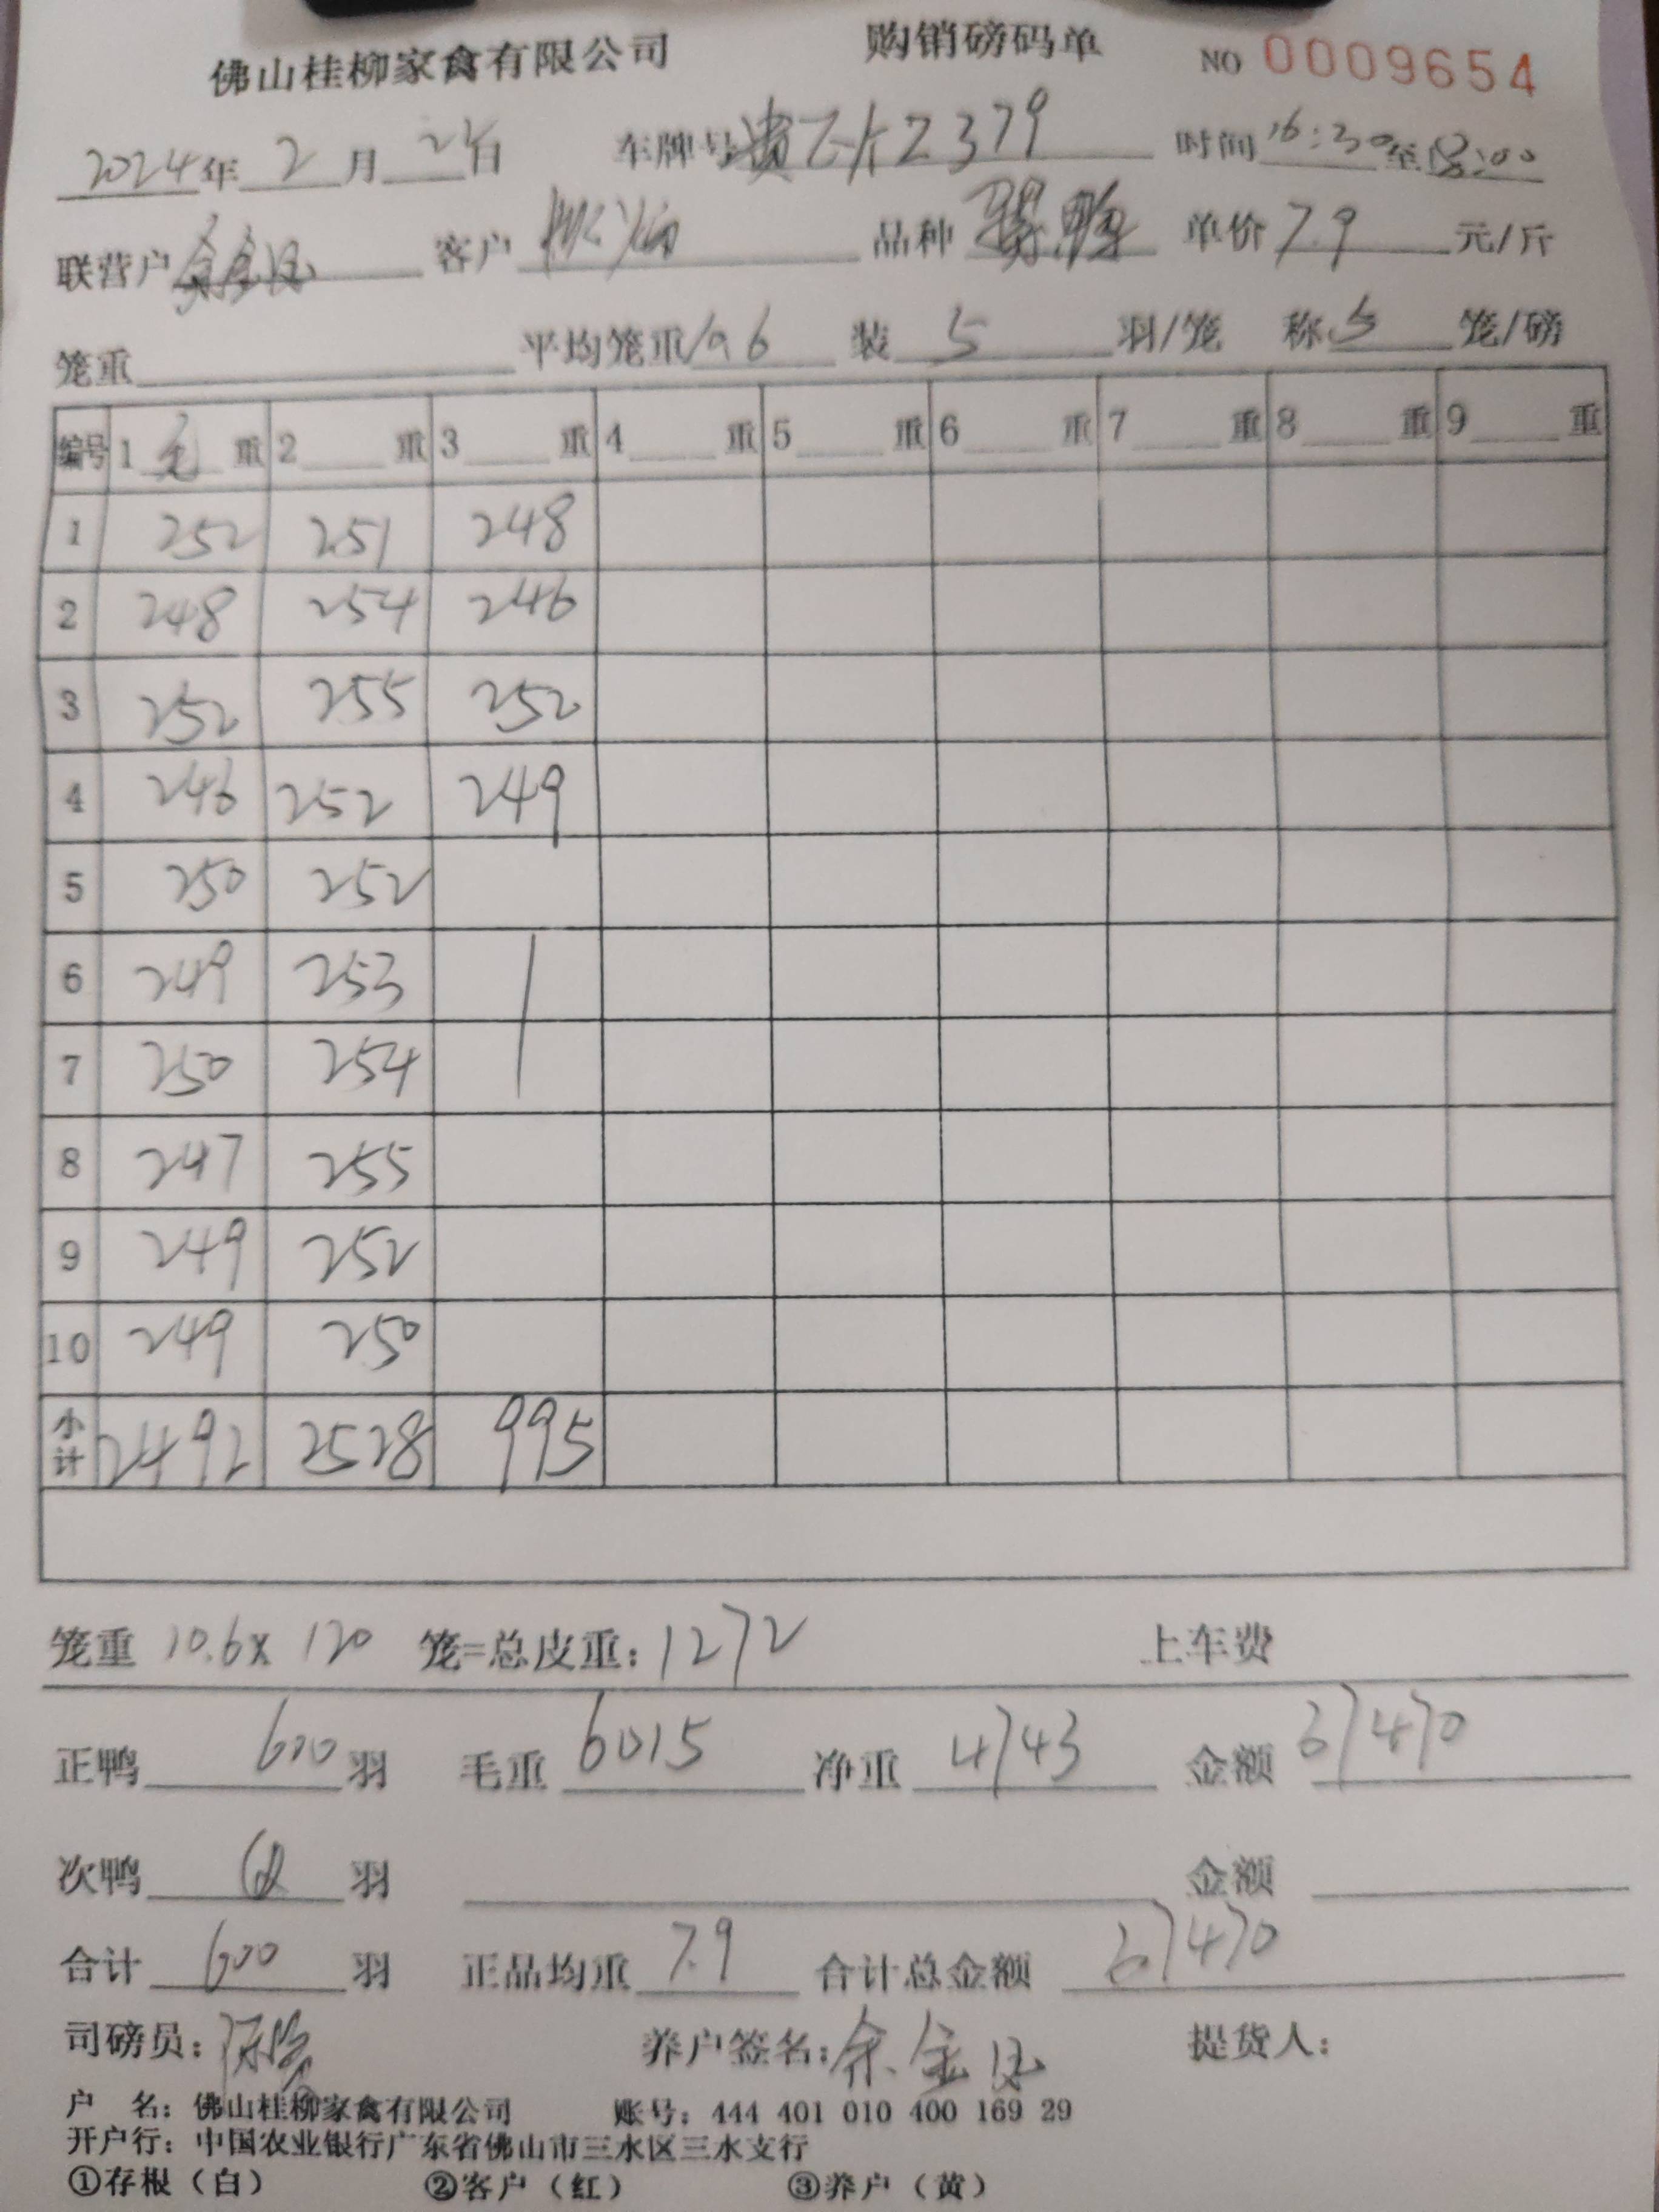 佛山桂柳家禽有限公司 购销磅码单 NO 0009654
2024年 2 月 日 车牌号 Z2379 时间 16:30 至 18:00
联营户 余金 客户 品种 单价 7.9 元/斤
笼重 平均笼重 10.6 装 5 羽/笼 称 5 笼/磅
编号 1 毛 重 2 重 3 重 4 重 5 重 6 重 7 重 8 重 9 重
1 252 251 248
2 248 254 246
3 252 255 252
4 246 252 249
5 250 252
6 249 253
7 250 254
8 247 255
9 249 252
10 249 250
小计 2492 2528 995
笼重 10.6x 120 笼=总皮重: 1272 上车费
正鸭 600 羽 毛重 6015 净重 4743 金额 37470
次鸭 羽 金额
合计 600 羽 正品均重 7.9 合计总金额 37470
司磅员: 陈 养户签名: 余金 提货人:
户 名: 佛山桂柳家禽有限公司 账号: 444 401 010 400 169 29
开户行: 中国农业银行广东省佛山市三水区三水支行
①存根（白） ②客户（红） ③养户（黄）